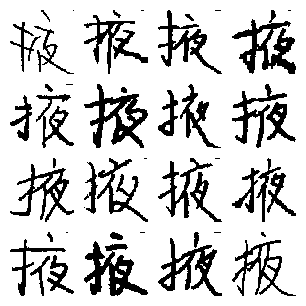 掖掖掖掖
掖掖掖掖
掖掖掖掖
掖掖掖掖